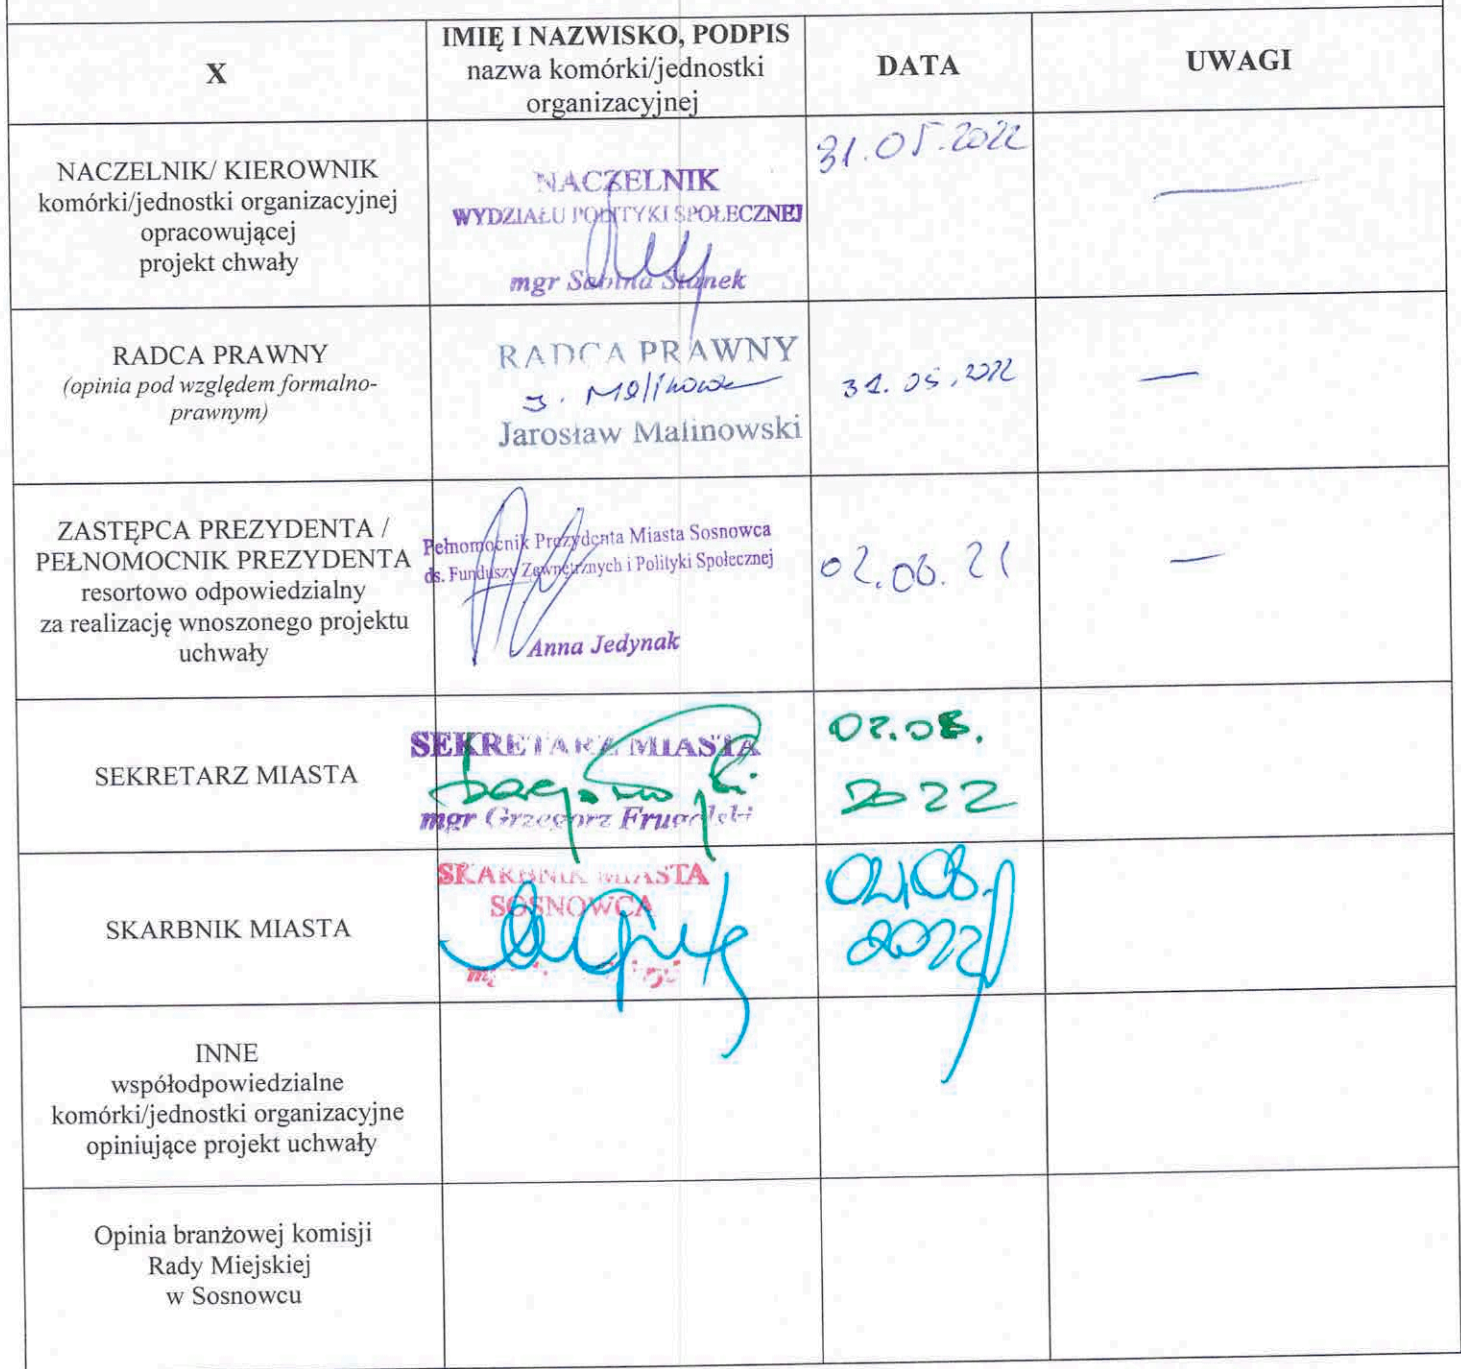 X
IMIĘ I NAZWISKO, PODPIS
nazwa komórki/jednostki
organizacyjnej
DATA
UWAGI
NACZELNIK/ KIEROWNIK
komórki/jednostki organizacyjnej
opracowującej
projekt chwały
NACZELNIK
WYDZIAŁU POLITYKI SPOŁECZNEJ
mgr Sabina Stanek
31.05.2022
RADCA PRAWNY
(opinia pod względem formalno-
prawnym)
RADCA PRAWNY
Jarosław Malinowski
31.05.2022
ZASTĘPCA PREZYDENTA /
PEŁNOMOCNIK PREZYDENTA
resortowo odpowiedzialny
za realizację wnoszonego projektu
uchwały
Pełnomocnik Prezydenta Miasta Sosnowca
ds. Funduszy Zewnętrznych i Polityki Społecznej
Anna Jedynak
02.06.21
SEKRETARZ MIASTA
SEKRETARZ MIASTA
mgr Grzegorz
2022
SKARBNIK MIASTA
SKARBNIK MIASTA
SOSNOWCA
2022
INNE
współodpowiedzialne
komórki/jednostki organizacyjne
opiniujące projekt uchwały
Opinia branżowej komisji
Rady Miejskiej
w Sosnowcu